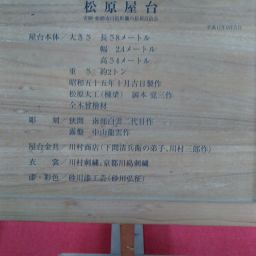 松原屋台
屋台本体 大きさ 長さ8メートル
幅 2.4メートル
高さ4メートル
重さ 約2トン
昭和五十五年十月吉日製作
松原大工(棟梁)
全木皆檜材
彫 刻 狭間 南部白雲二代目作
露盤 中山龍雲作
屋台金具 川村商店(下間清兵衛の弟子、川村三郎作)
衣 裳 川村刺繍、京都川島刺繍
漆・彩色 砂川漆工芸(砂川弘征)